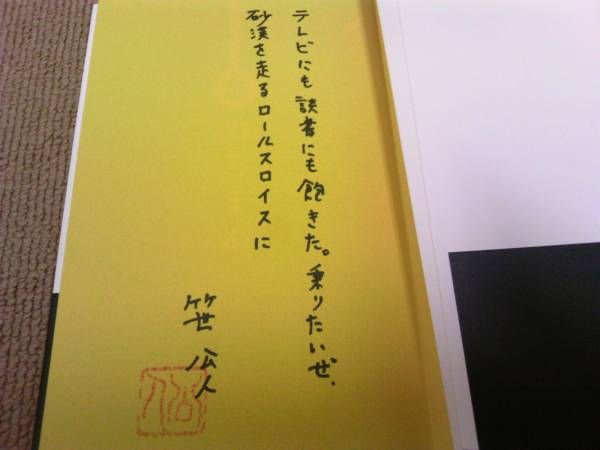 テレビにも読書にも飽きた。乗りたいぜ、
砂漠を走るロールスロイスに
笹公人